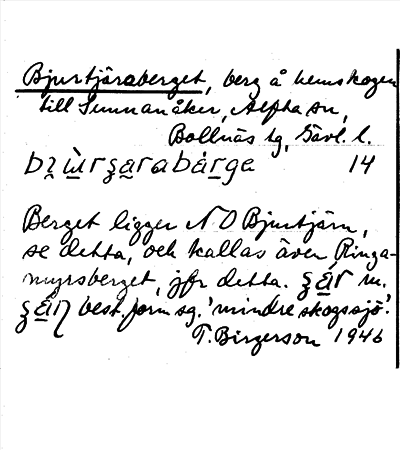 Bjurtjäraberget, berg å hemskogen
till Sunnanåker, Alfta sn,
Bollnäs tg, Gävl. l.
14
Berget ligger N O Bjurtjärn,
se detta, och kallas även Ringa-
myrsberget, jfr detta. m.
best. form sg. 'mindre skogssjö'.
T. Birgerson 1946